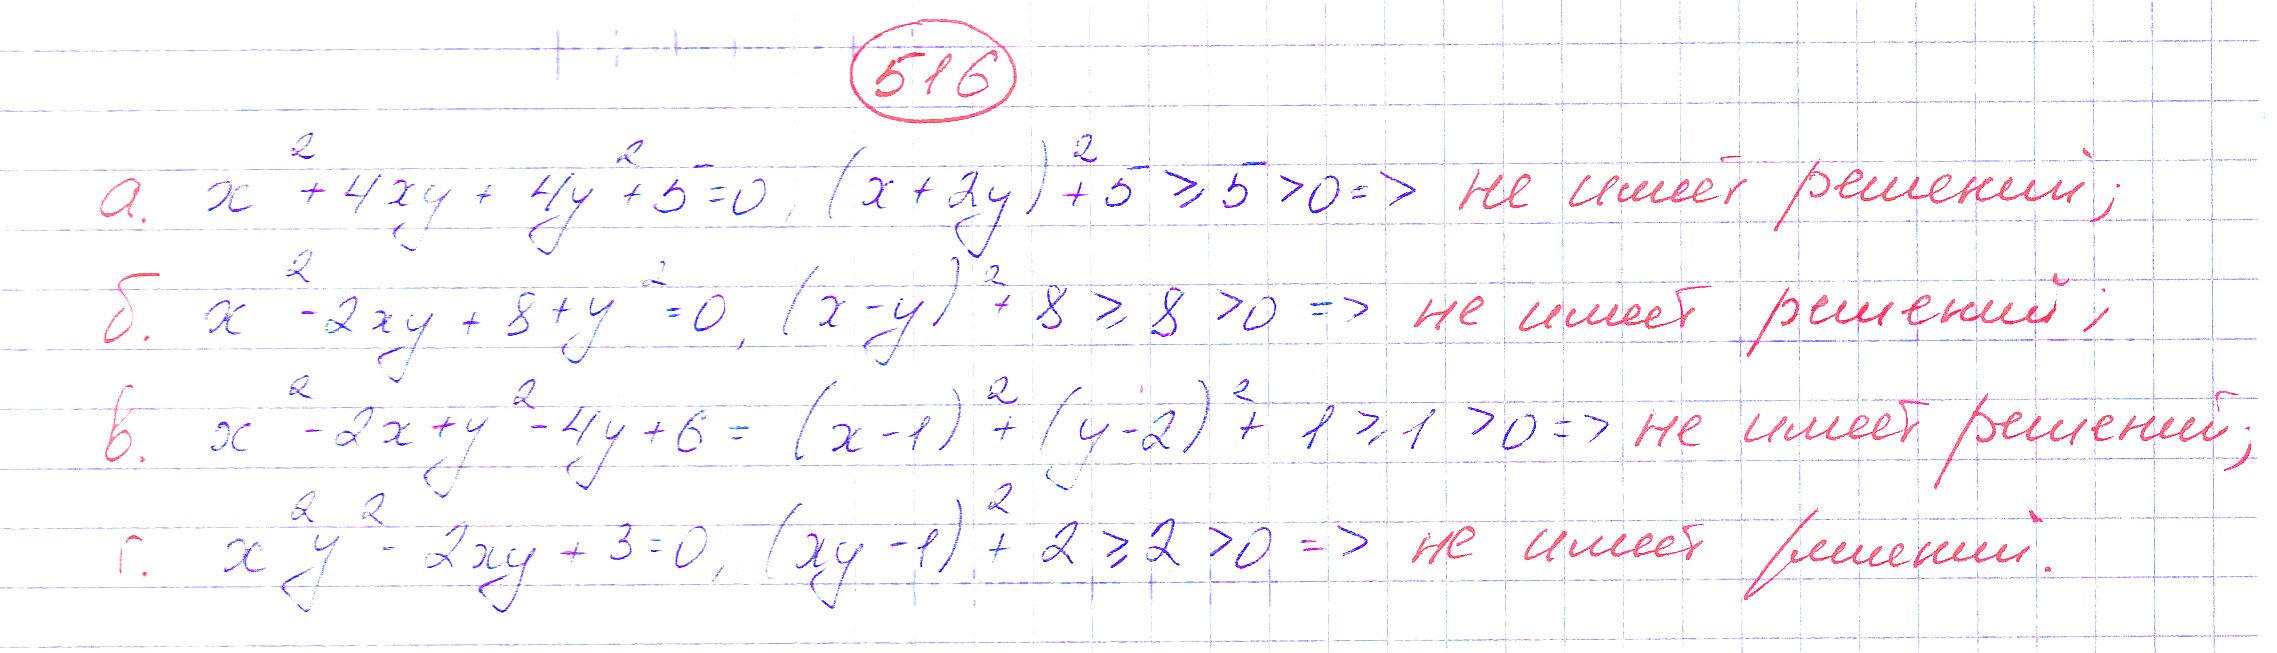 516
а. x² + 4xy + 4y² + 5 = 0, (x + 2y)² + 5 ⩾ 5 > 0 => не имеет решений;
б. x² - 2xy + 8 + y² = 0, (x - y)² + 8 ⩾ 8 > 0 => не имеет решений;
в. x² - 2x + y² - 4y + 6 = (x - 1)² + (y - 2)² + 1 ⩾ 1 > 0 => не имеет решений;
г. x²y² - 2xy + 3 = 0, (xy - 1)² + 2 ⩾ 2 > 0 => не имеет решений.